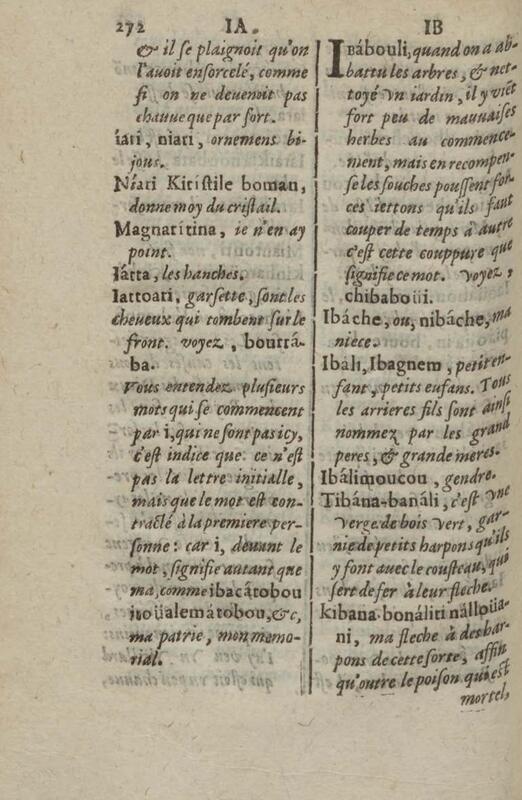 272 IA. IB
& il se plaignoit qu'on
l'auoit ensorcelé, comme
si on ne deuenoit pas
chauue que par sort.
iati, niari, ornemens bi-
jous.
Níari Kiristile boman,
donne moy du cristail.
Magnaritina, ie n'en ay
point.
Iátta, les hanches.
Iattoari, garsette, sont les
cheueux qui tombent sur le
front. voyez, bourrá-
ba.
Vous entendez plusieurs
mots qui se commencent
par i, qui ne sont pas icy,
c'est indice que ce n'est
pas la lettre initialle,
mais que le mot est con-
tracté à la premiere per-
sonne : car i, deuant le
mot, signifie autant que
ma, comme ibacátobou
inoüalemátobou, &c,
ma patrie, mon memo-
rial.
IBábouli, quand on a ab-
battu les arbres, & net-
toyé vn iardin, il y viẽt
fort peu de mauuaises
herbes au commence-
ment, mais en recompen-
se les souches poussent for-
ces iettons qu'ils faut
couper de temps à autre
c'est cette couppure que
signifie ce mot. voyez,
chibaboüi.
Ibáche, ou, nibáche, ma
niece.
Ibáli, Ibagnem, petit en-
fant, petits eufans. Tous
les arrieres fils sont ainsi
nommez par les grand
peres, & grande meres.
Ibálimoucou, gendre.
Tibána-banáli, c'est vne
verge de bois vert, gar-
nie de petits harpons qu'ils
y font auec le cousteau, qui
sert de fer à leur fleche.
Kibana-bonáliti nálloüa-
ni, ma fleche à des har-
pons de cette sorte, affin
qu'outre le poison qui est
mortel,